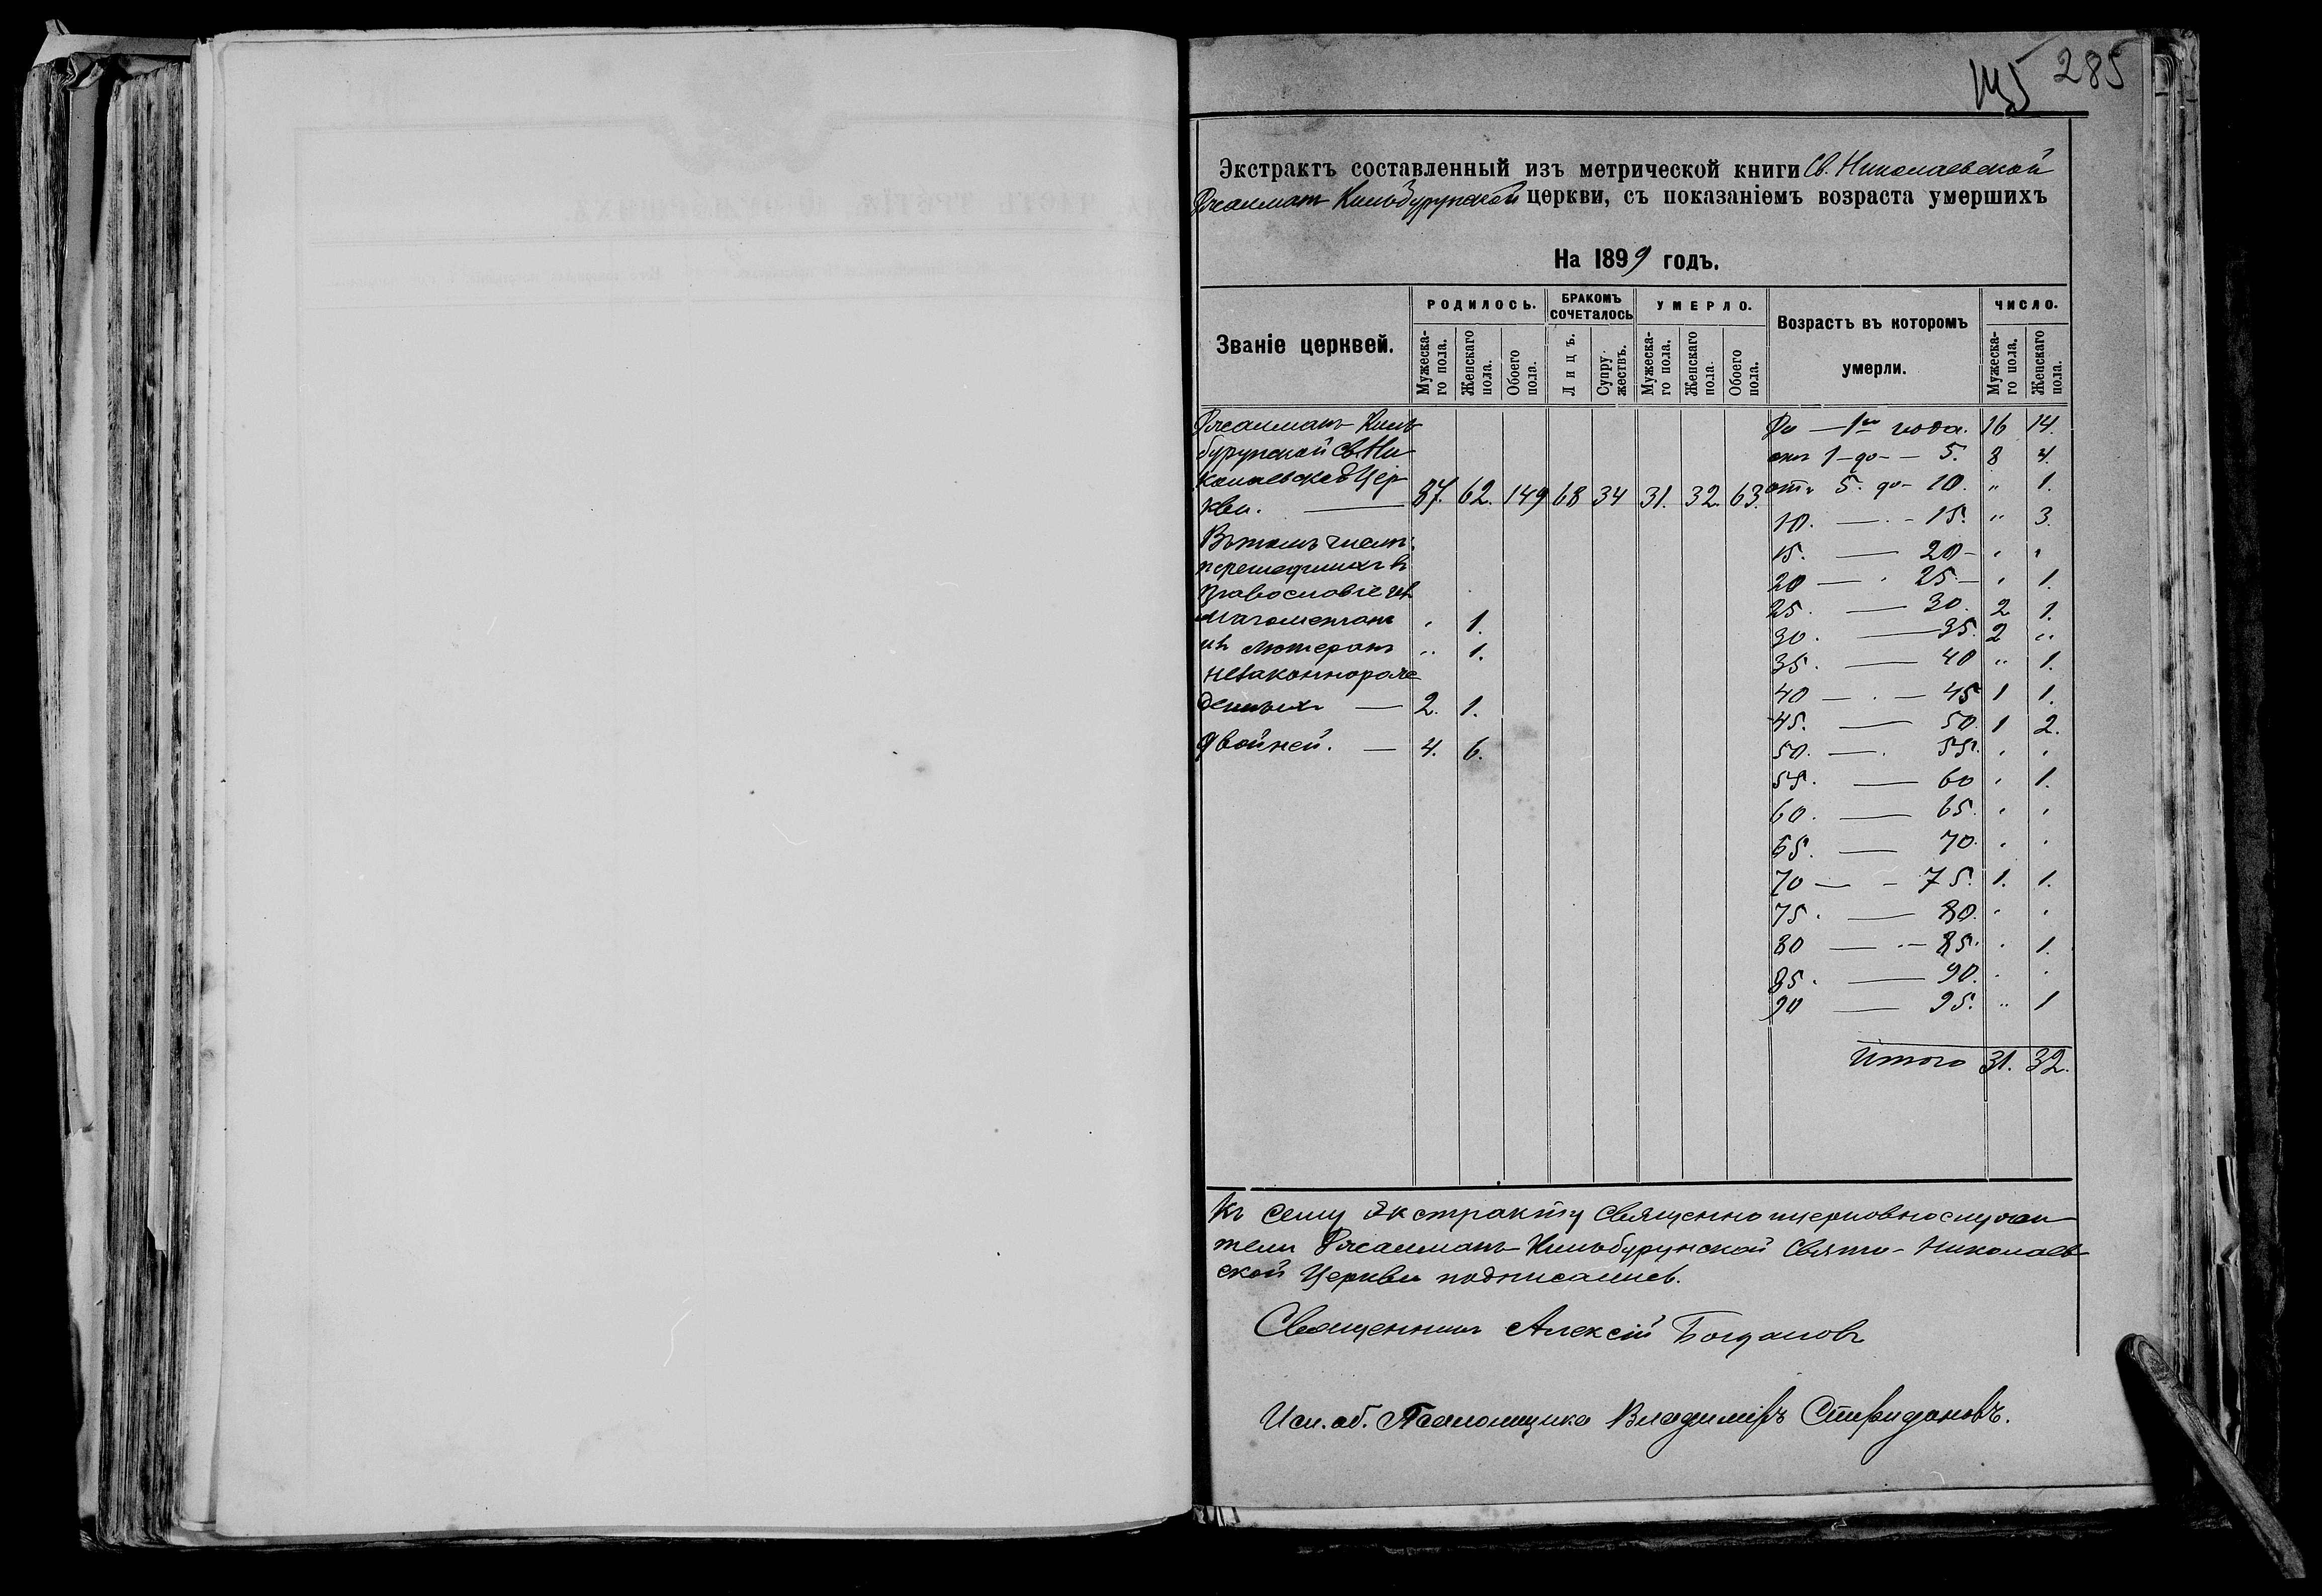 285
Экстрактъ составленный изъ метрической книги Св. Николаевской
Джалманъ Кильбурунской церкви, съ показаніемъ возраста умершихъ
На 1899 годъ.
Званіе церквей. РОДИЛОСЬ. БРАКОМЪ СОЧЕТАЛОСЬ УМЕРЛО. Возрастъ въ которомъ умерли. ЧИСЛО.
Мужеска-го пола. Женскаго пола. Обоего пола. Лицъ. Супру-жествъ. Мужеска-го пола. Женскаго пола. Обоего пола. Мужеска-го пола. Женскаго пола.
Джалманъ Киль
бурунской Св. Ни
колаевской Цер
кви. — 87. 62. 149 68 34 31. 32. 63.
Въ томъ числѣ:
перешедшихъ въ
православіе изъ
магометанъ " 1.
изъ лютеранъ " 1.
незаконнорож
денныхъ — 2. 1.
двойней. — 4. 6.
До — 1го года. 16 14.
отъ 1 - до - 5. 8 4.
отъ 5. до - 10. " 1.
10. — 15. " 3.
15. — 20 - " "
20 — 25 - " 1.
25. — 30. 2 1.
30. — 35. 2 "
35. — 40 " 1.
40 — 45 1 1.
45. — 50. 1 2.
50. — 55. " "
55. — 60 " 1.
60. — 65. " "
65. — 70. " "
70 — 75. 1. 1.
75. — 80. " "
80 — 85. " 1.
85. — 90. " "
90 — 95. " 1
Итого 31. 32.
Къ сему Экстракту священноцерковнослужи
тели Джалманъ-Кильбурунской Свято-Николаев
ской Церкви подписались.
Священникъ Алексій Богдановъ
Исп. об. Псаломщика Владиміръ Спиридоновъ.